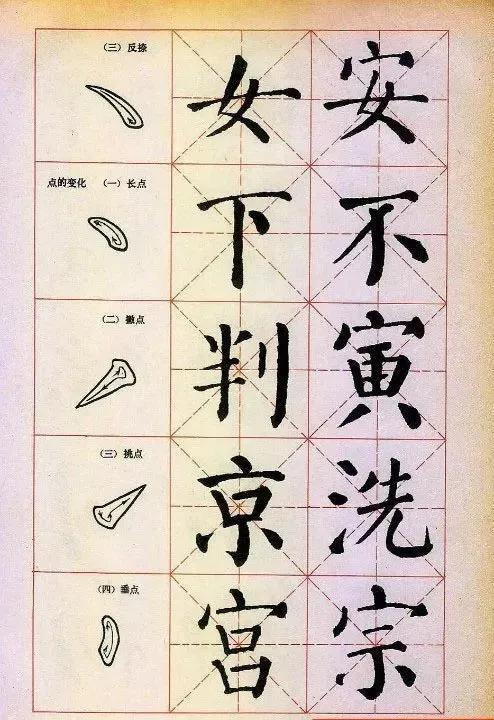 （三）反捺
女 安
点的变化 （一）长点
下 不
（二）撇点
判 寅
（三）挑点
京 洗
（四）垂点
宫 宗